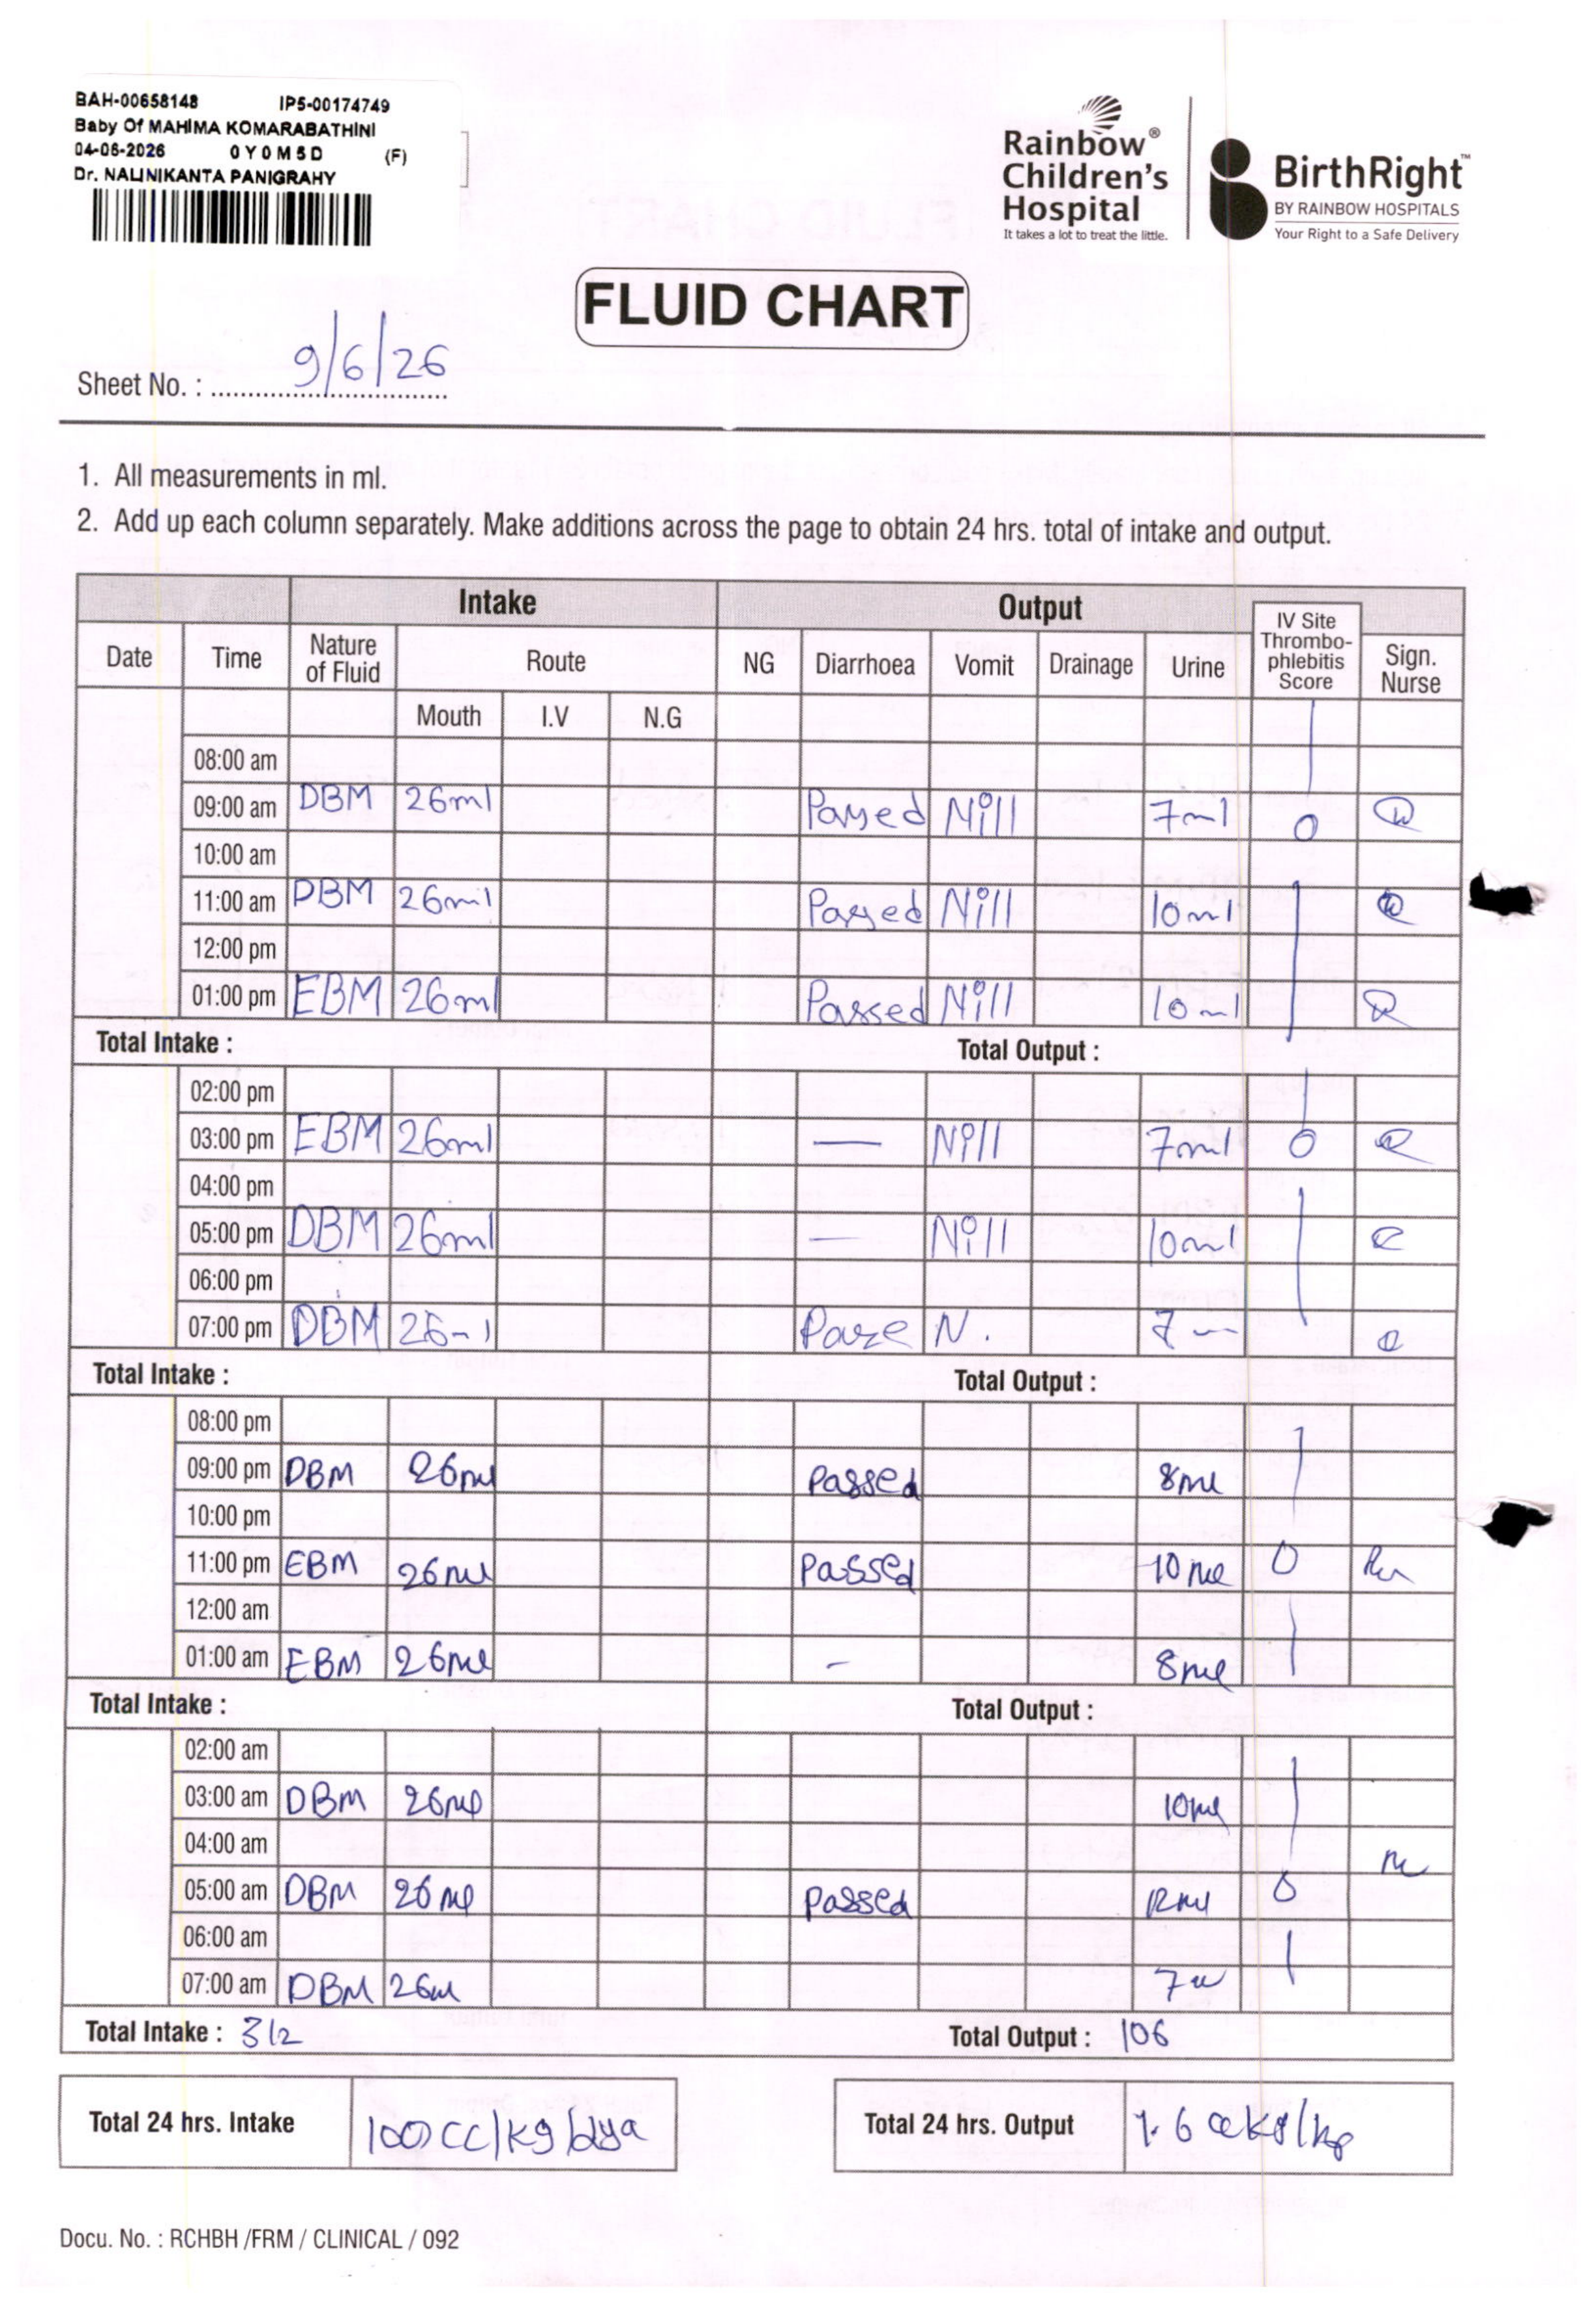 BAH-00658148 IP5-00174749
Baby Of MAHIMA KOMARABATHINI
04-06-2026 0Y0M5D (F)
Dr. NALINIKANTA PANIGRAHY
Rainbow® Children's Hospital
It takes a lot to treat the little.
BirthRight™
BY RAINBOW HOSPITALS
Your Right to a Safe Delivery
FLUID CHART
Sheet No. : 9/6/26
1. All measurements in ml.
2. Add up each column separately. Make additions across the page to obtain 24 hrs. total of intake and output.
Intake Output
Date Time Nature of Fluid Route NG Diarrhoea Vomit Drainage Urine IV Site Thrombo-phlebitis Score Sign. Nurse
Mouth I.V N.G
08:00 am
09:00 am DBM 26ml Passed Nill 7ml 0
10:00 am
11:00 am DBM 26ml Passed Nill 10ml
12:00 pm
01:00 pm EBM 26ml Passed Nill 10ml
Total Intake : Total Output :
02:00 pm
03:00 pm EBM 26ml — Nill 7ml 0
04:00 pm
05:00 pm DBM 26ml — Nill 10ml
06:00 pm
07:00 pm DBM 26ml N. 7
Total Intake : Total Output :
08:00 pm
09:00 pm DBM 26ml Passed 8ml
10:00 pm
11:00 pm EBM 26ml Passed 10ml 0
12:00 am
01:00 am EBM 26ml - 8ml
Total Intake : Total Output :
02:00 am
03:00 am DBM 26ml 10ml
04:00 am
05:00 am DBM 26ml Passed 12ml 0
06:00 am
07:00 am DBM 26ml 7
Total Intake : 312 Total Output : 106
Total 24 hrs. Intake 100 cc/kg/dya
Total 24 hrs. Output 1.6
Docu. No. : RCHBH /FRM / CLINICAL / 092